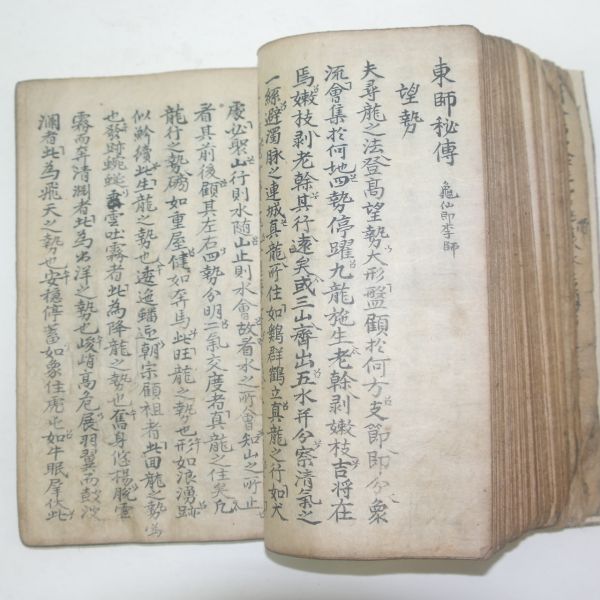 東師秘傳
龜仙即李師
望勢
夫尋龍之法登髙望勢大形盤顧於何方支節即分衆
流會集於何地四勢停躍九龍施生老幹剥嫩枝吉将在
焉嫩枝剥老幹其行遠矣或三山齊出五水并分察清氣之
一絲避濁脉之連城真龍所住如鷄群鶴立真龍之行如犬
處必聚山行則水随山止則水會故看水之所會知山之所止
者其前後顧其左右四勢分明二氣交度者真龍之住矣凡
龍行之勢礴如重屋健如奔馬此旺龍之勢也形如浪湧跡
似斷續此生龍之勢也逶迤蟠迎朝宗顧祖者此回龍之勢
也發跡蜿蜒 雲吐霧者此為降龍之勢也奮身悠揚脱
霧而弄清澗者此為出洋之勢也峻峭髙危展羽翼而鼓
瀾者此為飛天之勢也安穩停蓄如象住虎屯如牛眠犀伏此